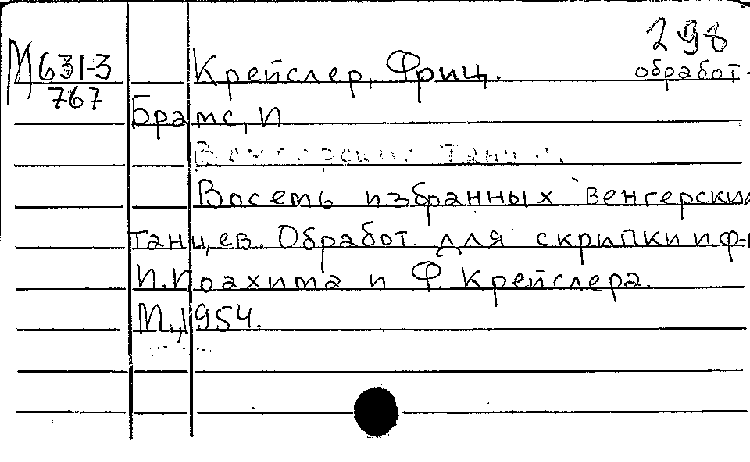 298
М631-3 Крейслер, Фриц. обработ.
767
Брамс, И
Венгерские танцы.
Восемь избранных венгерских
танцев. Обработ. для скрипки и ф-п
И. Иоахима и Ф. Крейслера.
М., 1954.